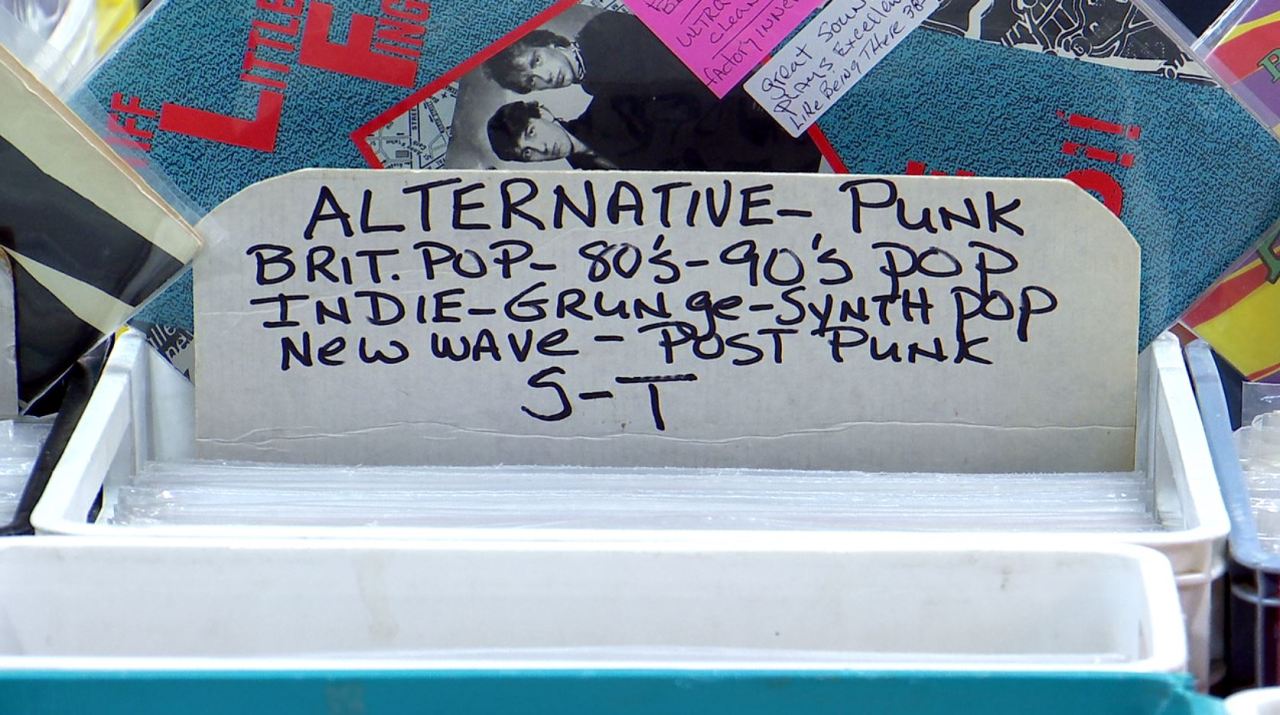 IFF
LITTLE
FING
ULTRA
Clean
factory INNER
Great Sound
Plays Excellent
Like Being There
!!
ALTERNATIVE- PUNK
BRIT. POP- 80's-90's POP
INDIE-GRUNge-SYNTH POP
New wave - POST PUNK
S-T